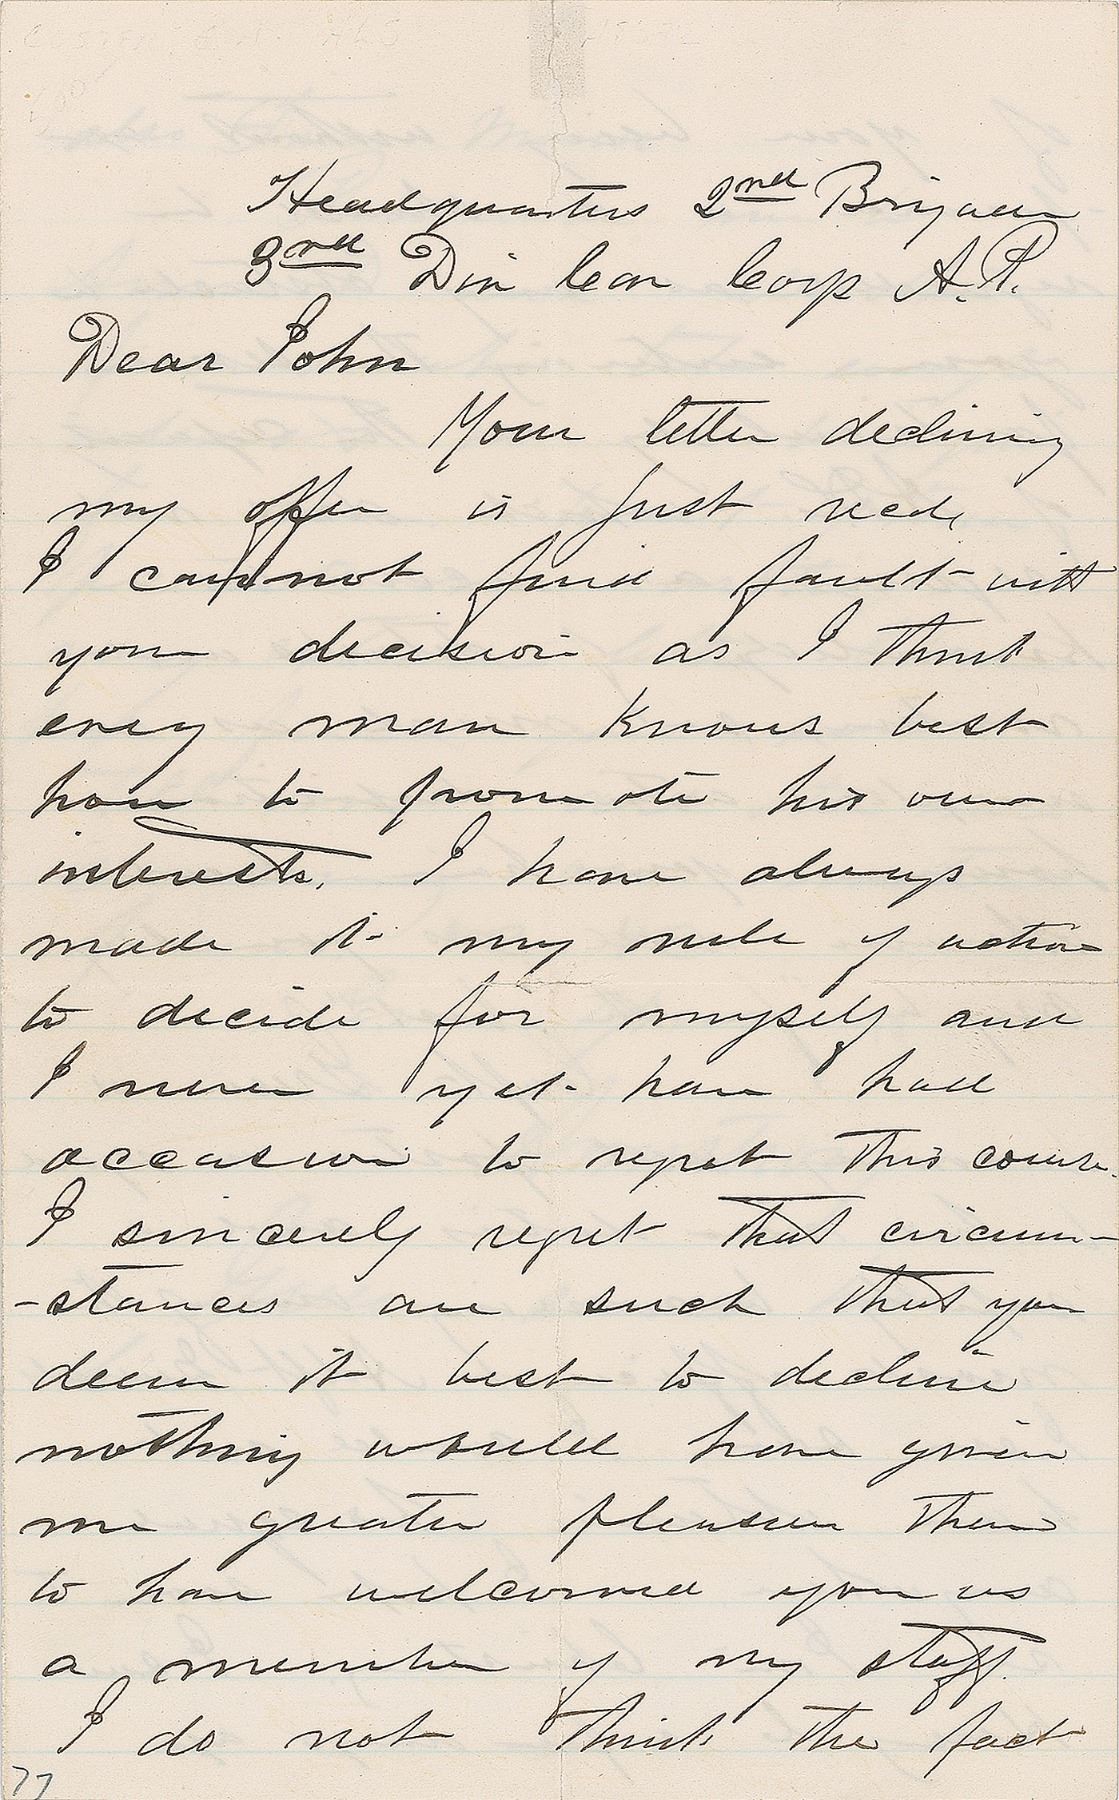 Headquarters 2nd Brigade
3rd Div Cav Corps A.P.
Dear John
Your letter declining
my offer is just recd,
I cannot find fault with
your decision as I think
every man knows best
how to promote his own
interests. I have always
made it my rule of action
to decide for myself and
I never yet have had
occasion to regret this course.
I sincerely regret that circum-
-stances are such that you
deem it best to decline
nothing would have given
me greater pleasure than
to have welcomed you as
a member of my staff.
I do not think the fact
77